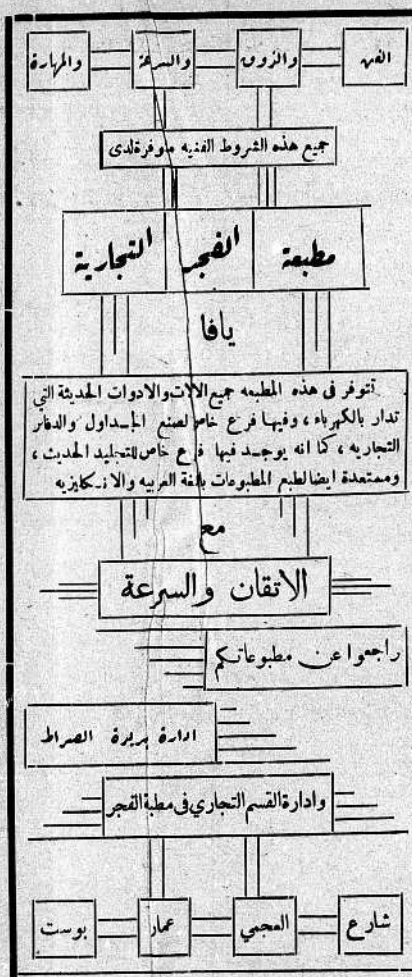 الفن والذوق والسرعة والمهارة
جميع هذه الشروط الفنيه متوفرة لدى
مطبعة الفجر التجارية
يافا
تتوفر في هذه المطبعه جميع الالات والادوات الحديثة التي
تدار بالكهرباء ، وفيها فرع خاص لصنع الجداول والدفاتر
التجاريه ، كما انه يوجد فيها فرع خاص للتجليد الحديث ،
ومستعدة ايضا لطبع المطبوعات باللغة العربيه والانكليزيه
مع
الاتقان والسرعة
راجعوا عن مطبوعاتكم
ادارة جريدة الصراط
وادارة القسم التجاري في مطبة الفجر
شارع العجمي عمار بوست